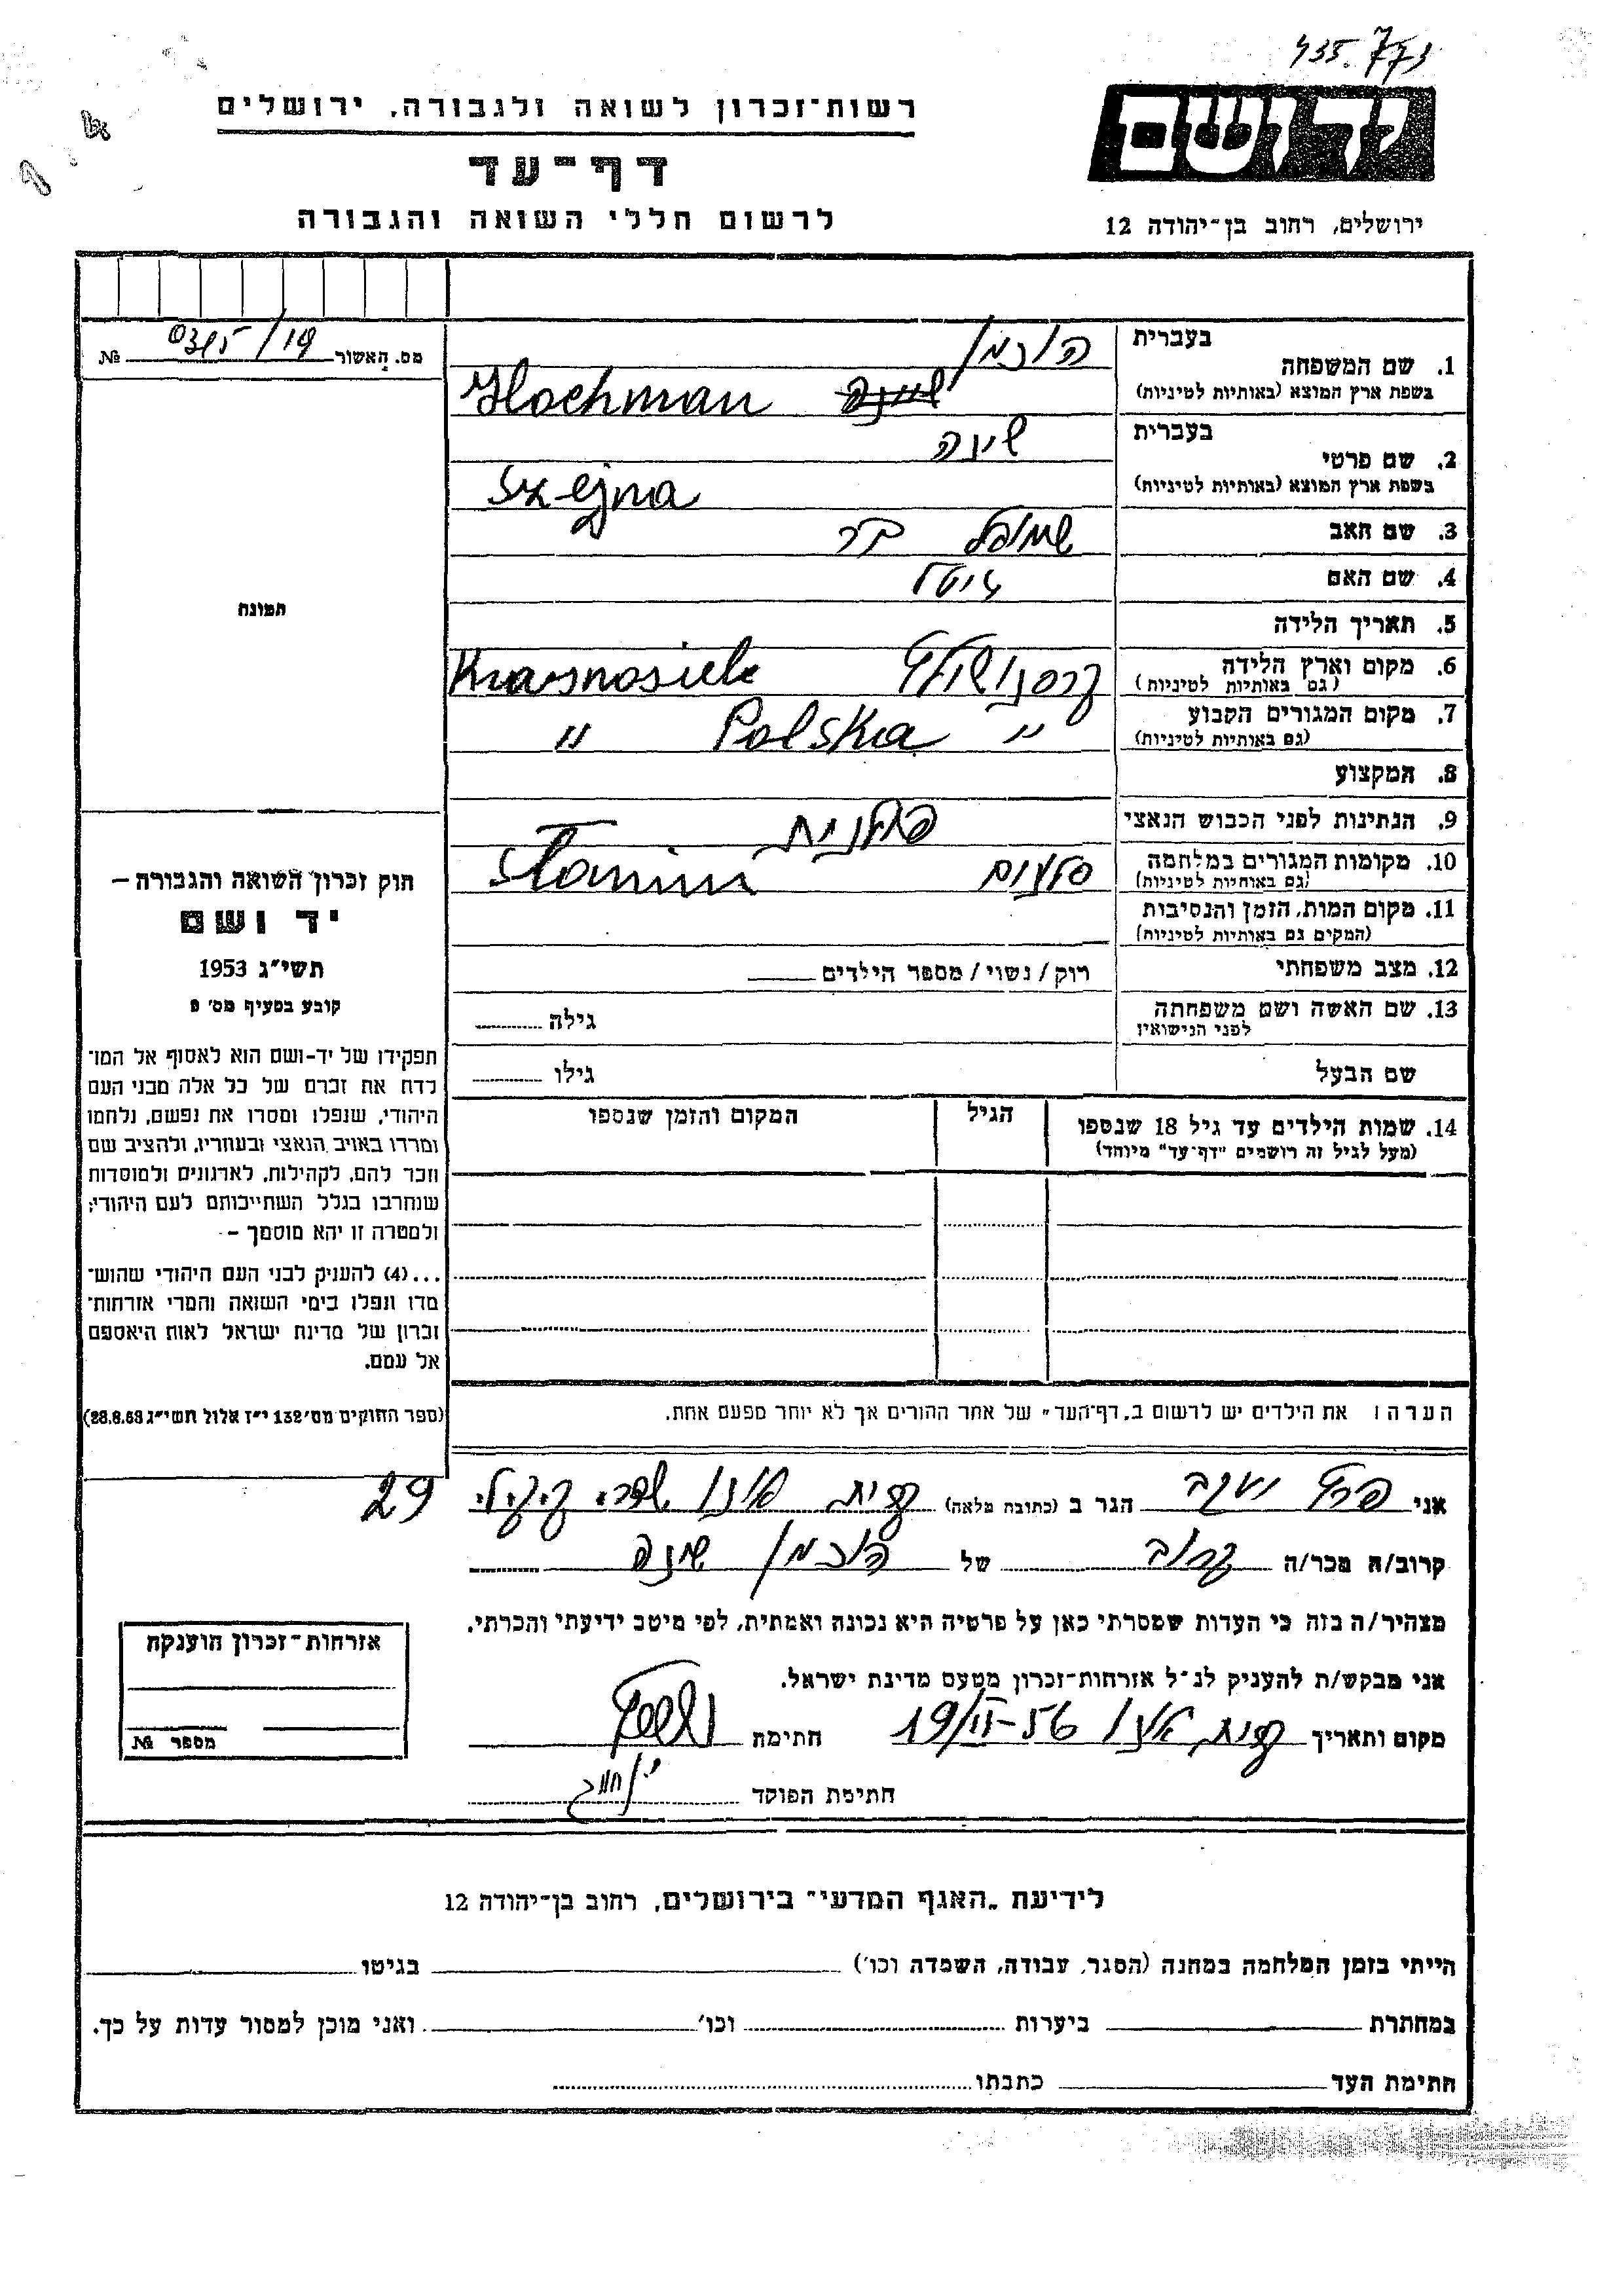 435.773
יד ושם
רשות־זכרון לשואה ולגבורה, ירושלים
דף־עד
לרשום חללי השואה והגבורה
ירושלים, רחוב בן־יהודה 12
מס. האשור 0395/19 №
תמונה
חוק זכרון השואה והגבורה –
יד ושם
תשי״ג 1953
קובע בסעיף מס׳ 9
תפקידו של יד-ושם הוא לאסוף אל המו־
לדת את זכרם של כל אלה מבני העם
היהודי, שנפלו ומסרו את נפשם, נלחמו
ומרדו באויב הנאצי ובעוזריו, ולהציב שם
וזכר להם, לקהילות, לארגונים ולמוסדות
שנחרבו בגלל השתייכותם לעם היהודי;
ולמטרה זו יהא מוסמך –
...(4) להעניק לבני העם היהודי שהוש־
מדו ונפלו בימי השואה והמרי אזרחות־
זכרון של מדינת ישראל לאות היאספם
אל עמם.
(ספר החוקים מס׳ 132 י״ז אלול תשי״ג 28.8.53)
בעברית הוכמן
1. שם המשפחה
בשפת ארץ המוצא (באותיות לטיניות) Hochman
בעברית שינה
2. שם פרטי
בשפת ארץ המוצא (באותיות לטיניות) Szejna
3. שם האב שמואל בר
4. שם האם גיטל
5. תאריך הלידה
6. מקום וארץ הלידה קרסנושילץ Krasnosielc
(גם באותיות לטיניות)
7. מקום המגורים הקבוע " Polska "
(גם באותיות לטיניות)
8. המקצוע
9. הנתינות לפני הכבוש הנאצי פולנית
10. מקומות המגורים במלחמה סלונים Słonim
(גם באותיות לטיניות)
11. מקום המות, הזמן והנסיבות
(המקום גם באותיות לטיניות)
12. מצב משפחתי רוק / נשוי / מספר הילדים
13. שם האשה ושם משפחתה גילה
לפני הנישואין
שם הבעל גילו
14. שמות הילדים עד גיל 18 שנספו הגיל המקום והזמן שנספו
(מעל לגיל זה רושמים "דף־עד" מיוחד)
הערה: את הילדים יש לרשום ב„דף־העד" של אחד ההורים אך לא יותר מפעם אחת.
אני יעקב הגר ב (כתובת מלאה) קרית אונו 29
קרוב/ה מכר/ה קרוב של הוכמן שינה
מצהיר/ה בזה כי העדות שמסרתי כאן על פרטיה היא נכונה ואמתית, לפי מיטב ידיעתי והכרתי.
אני מבקש/ת להעניק לנ״ל אזרחות־זכרון מטעם מדינת ישראל.
מקום ותאריך קרית אונו 19/II-56 חתימת
חתימת הפוקד
אזרחות־זכרון הוענקה
מספר №
לידיעת „האגף המדעי" בירושלים, רחוב בן־יהודה 12
הייתי בזמן המלחמה במחנה (הסגר, עבודה, השמדה וכו׳) בגיטו
במחתרת ביערות וכו׳ ואני מוכן למסור עדות על כך.
חתימת העד כתבתו